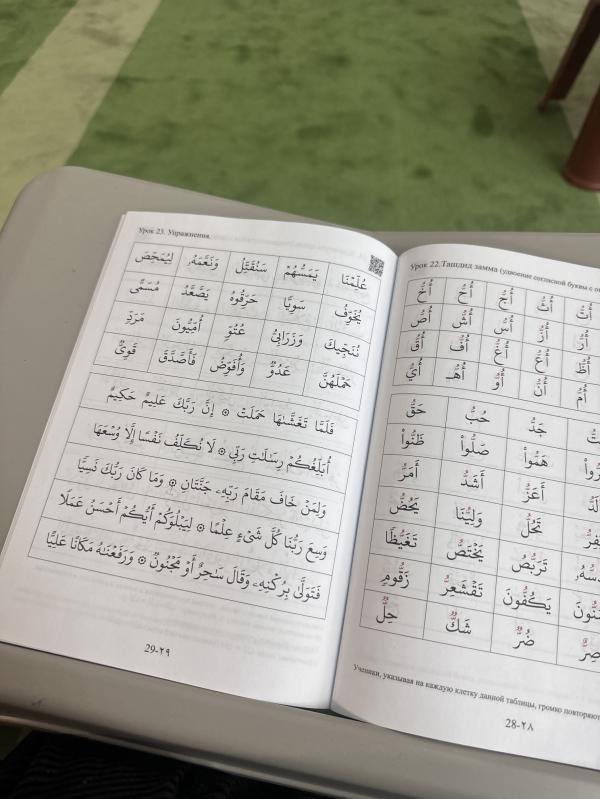 Урок 23. Упражнения.
عُلِّمْنَا يَمَسُّهُمْ سَنُقَتِّلُ وَنَعَّمَهُۥ لِيُمَحِّصَ
يُخَوِّفُ سَوِيًّا حَرِّقُوهُ يَصَّعَّدُ مُسَمًّى
نُنَجِّيكَ وَزَرَابِيُّ عُتُوٍّ أُمِّيُّونَ مَرَدٍّ
حَمْلَهُنَّ عَدُوٌّ وَأُفَوِّضُ فَأَصَّدَّقَ قَوِيٌّ
فَلَمَّا تَغَشَّىٰهَا حَمَلَتْ ۞ إِنَّ رَبَّكَ عَلِيمٌ حَكِيمٌ
أُبَلِّغُكُمْ رِسَالَاتِ رَبِّي ۞ لَا نُكَلِّفُ نَفْسًا إِلَّا وُسْعَهَا
وَلِمَنْ خَافَ مَقَامَ رَبِّهِۦ جَنَّتَانِ ۞ وَمَا كَانَ رَبُّكَ نَسِيًّا
وَسِعَ رَبُّنَا كُلَّ شَيْءٍ عِلْمًا ۞ لِيَبْلُوَكُمْ أَيُّكُمْ أَحْسَنُ عَمَلًا
فَتَوَلَّىٰ بِرُكْنِهِۦ وَقَالَ سَٰحِرٌ أَوْ مَجْنُونٌ ۞ وَرَفَعْنَٰهُ مَكَانًا عَلِيًّا
29-٢٩
Урок 22.Ташдид замма (удвоение согласной буквы с
أُتُّ أُثُّ أُجُّ أُحُّ أُخُّ
أُرُّ أُزُّ أُسُّ أُشُّ أُصُّ
أُظُّ أُعُّ أُغُّ أُفُّ أُقُّ
أُمُّ أُنُّ أُوُّ أُهُّـ أُيُّ
جَدُّ حُبُّ حَقُّ
هَمُّواْ صَلُّواْ ظَنُّواْ
أَعَزُّ أَشَدُّ أَمَرُّ
تَحُلُّ وَلِيُّنَا يَحُضُّ
تَرَبُّصُ يَخْتَصُّ تَغَيُّظًا
يَكُفُّونَ تَقْشَعِرُّ زَقُّومٍ
ضُرٌّ شَكٌّ حِلٌّ
Ученики, указывая на каждую клетку данной таблицы, громко повторяют
28-٢٨